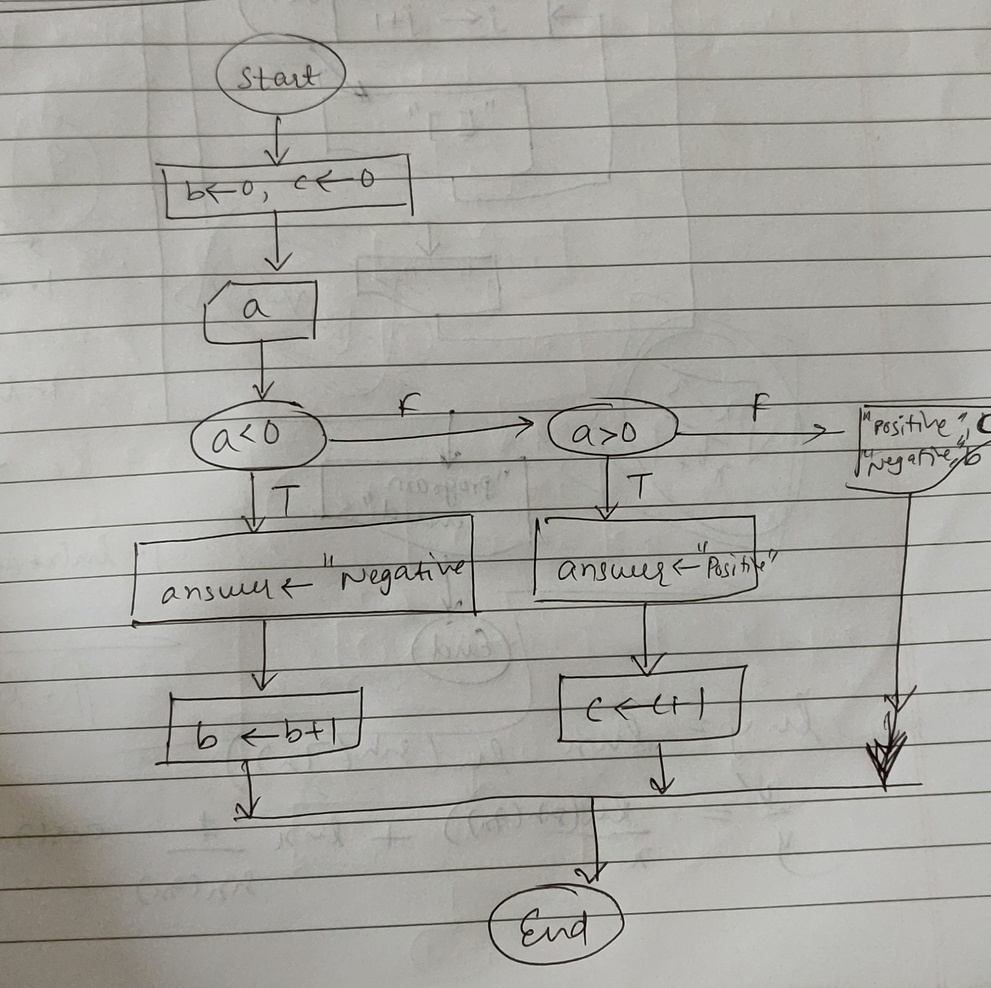 Start
b←0, c←0
a
a<0
F
a>0
F
"Positive", C
"Negative", b
T
T
answer ← "Negative
answer ← "Positive"
b ← b+1
c ← c+1
End